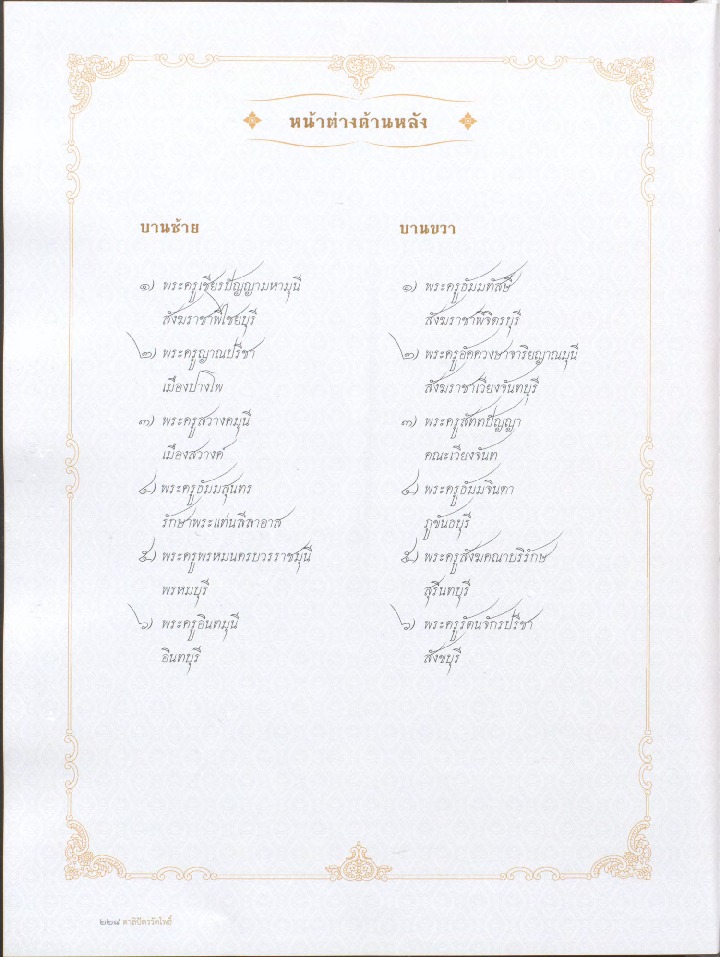 หน้าต่างด้านหลัง
บานซ้าย
๑) พระครูเชียรปัญญามหามุนี
สังฆราชาพิไชยบุรี
๒) พระครูญาณปรีชา
เมืองปางโพ
๓) พระครูสวางคมุนี
เมืองสวางค์
๔) พระครูธัมมสุนทร
รักษาพระแท่นสีลาอาส
๕) พระครูพรหมนครบวรราชมุนี
พรหมบุรี
๖) พระครูอินทมุนี
อินทบุรี
บานขวา
๑) พระครูธัมมทัสษี
สังฆราชาพิจิตรบุรี
๒) พระครูอัคควงษาจาริยญาณมุนี
สังฆราชาเวียงจันทบุรี
๓) พระครูสัททปัญญา
คณะเวียงจันท
๔) พระครูธัมมจินดา
ภูขันธบุรี
๕) พระครูสังฆคณาบริรักษ
สุรินทบุรี
๖) พระครูรัตนจักรปรีชา
สังขบุรี
๒๒๘ ตาลิปัตรวัดโพธิ์